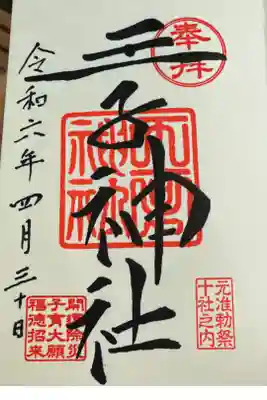 奉拝
元准勅祭
十社之内
王子神社
令和六年四月三十日
開運除災
子育大願
福徳招来